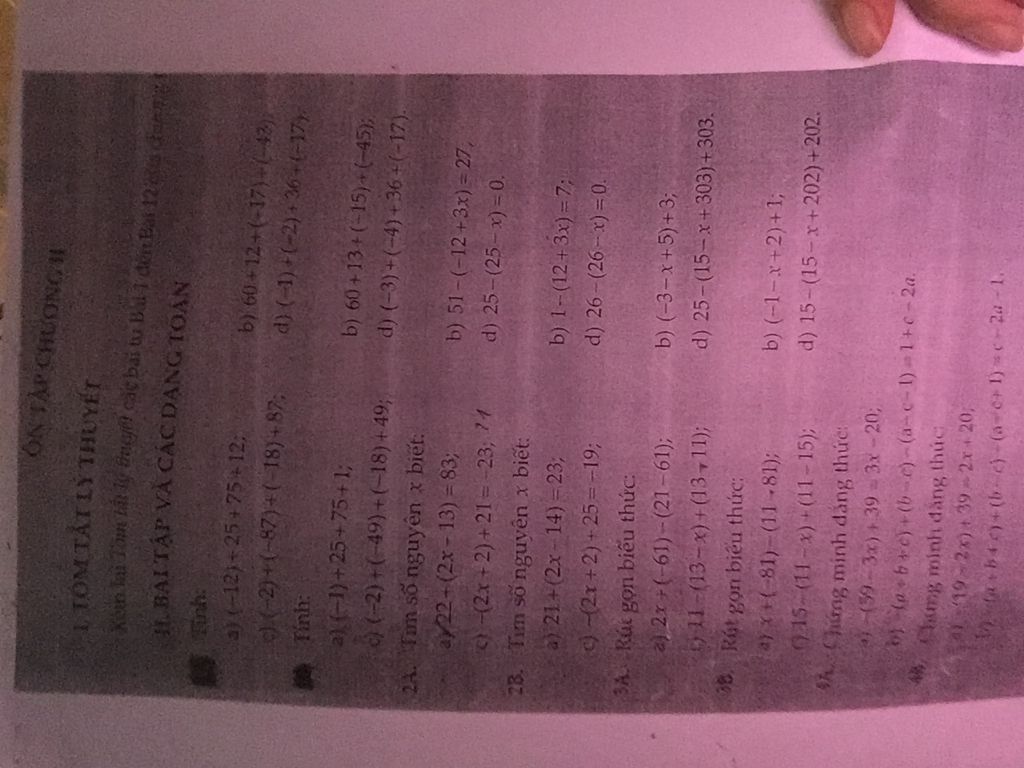 ÔN TẬP CHƯƠNG II
I. TÓM TẮT LÝ THUYẾT
Xem lại Tóm tắt lý thuyết các bài từ Bài 1 đến Bài 12
II. BÀI TẬP VÀ CÁC DẠNG TOÁN
Tính:
a) (-12)+25+75+12; b) 60+12+(-17)+(-43);
c) (-2)+(-87)+(-18)+87; d) (-1)+(-2)+36+(-17).
Tính:
a) (-1)+25+75+1; b) 60+13+(-15)+(-45);
c) (-2)+(-49)+(-18)+49; d) (-3)+(-4)+36+(-17).
2A. Tìm số nguyên x biết:
a) 22+(2x-13)=83; b) 51-(-12+3x)=27,
c) -(2x+2)+21=-23; d) 25-(25-x)=0.
2B. Tìm số nguyên x biết:
a) 21+(2x-14)=23; b) 1-(12+3x)=7;
c) -(2x+2)+25=-19; d) 26-(26-x)=0.
3A. Rút gọn biểu thức:
a) 2x+(-61)-(21-61); b) (-3-x+5)+3;
c) 11-(13-x)+(13-11); d) 25-(15-x+303)+303.
3B. Rút gọn biểu thức:
a) x+(-81)-(11-81); b) (-1-x+2)+1;
c) 15-(11-x)+(11-15); d) 15-(15-x+202)+202.
4A. Chứng minh đẳng thức:
a) -(59-3x)+39=3x-20;
b) -(a+b+c)+(b-c)-(a-c-1)=1+c-2a.
4B. Chứng minh đẳng thức:
a) -(19-2x)+39=2x+20;